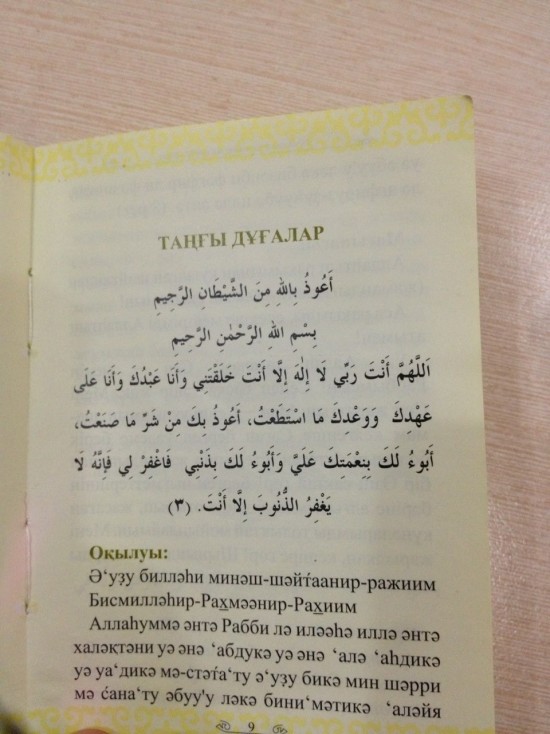 ТАҢҒЫ ДҰҒАЛАР
أَعُوذُ بِاللهِ مِنَ الشَّيْطَانِ الرَّجِيمِ
بِسْمِ اللهِ الرَّحْمٰنِ الرَّحِيمِ
اَللَّهُمَّ أَنْتَ رَبِّي لَا إِلٰهَ إِلَّا أَنْتَ خَلَقْتَنِي وَأَنَا عَبْدُكَ وَأَنَا عَلَى
عَهْدِكَ وَوَعْدِكَ مَا اسْتَطَعْتُ، أَعُوذُ بِكَ مِنْ شَرِّ مَا صَنَعْتُ،
أَبُوءُ لَكَ بِنِعْمَتِكَ عَلَيَّ وَأَبُوءُ لَكَ بِذَنْبِي فَاغْفِرْ لِي فَإِنَّهُ لَا
يَغْفِرُ الذُّنُوبَ إِلَّا أَنْتَ. (٣)
Оқылуы:
Ә‘узу билләһи минәш-шәйтаанир-ражиим
Бисмилләһир-Рахмәәнир-Рахиим
Аллаһуммә әнтә Рабби лә иләәһә иллә әнтә
халәқтәни уә әнә ‘абдукә уә әнә ‘алә ‘аһдикә
уә уа‘дикә мә-стәта‘ту ә‘узу бикә мин шәрри
мә сана‘ту әбуу'у ләкә бини‘мәтикә ‘аләйя
9